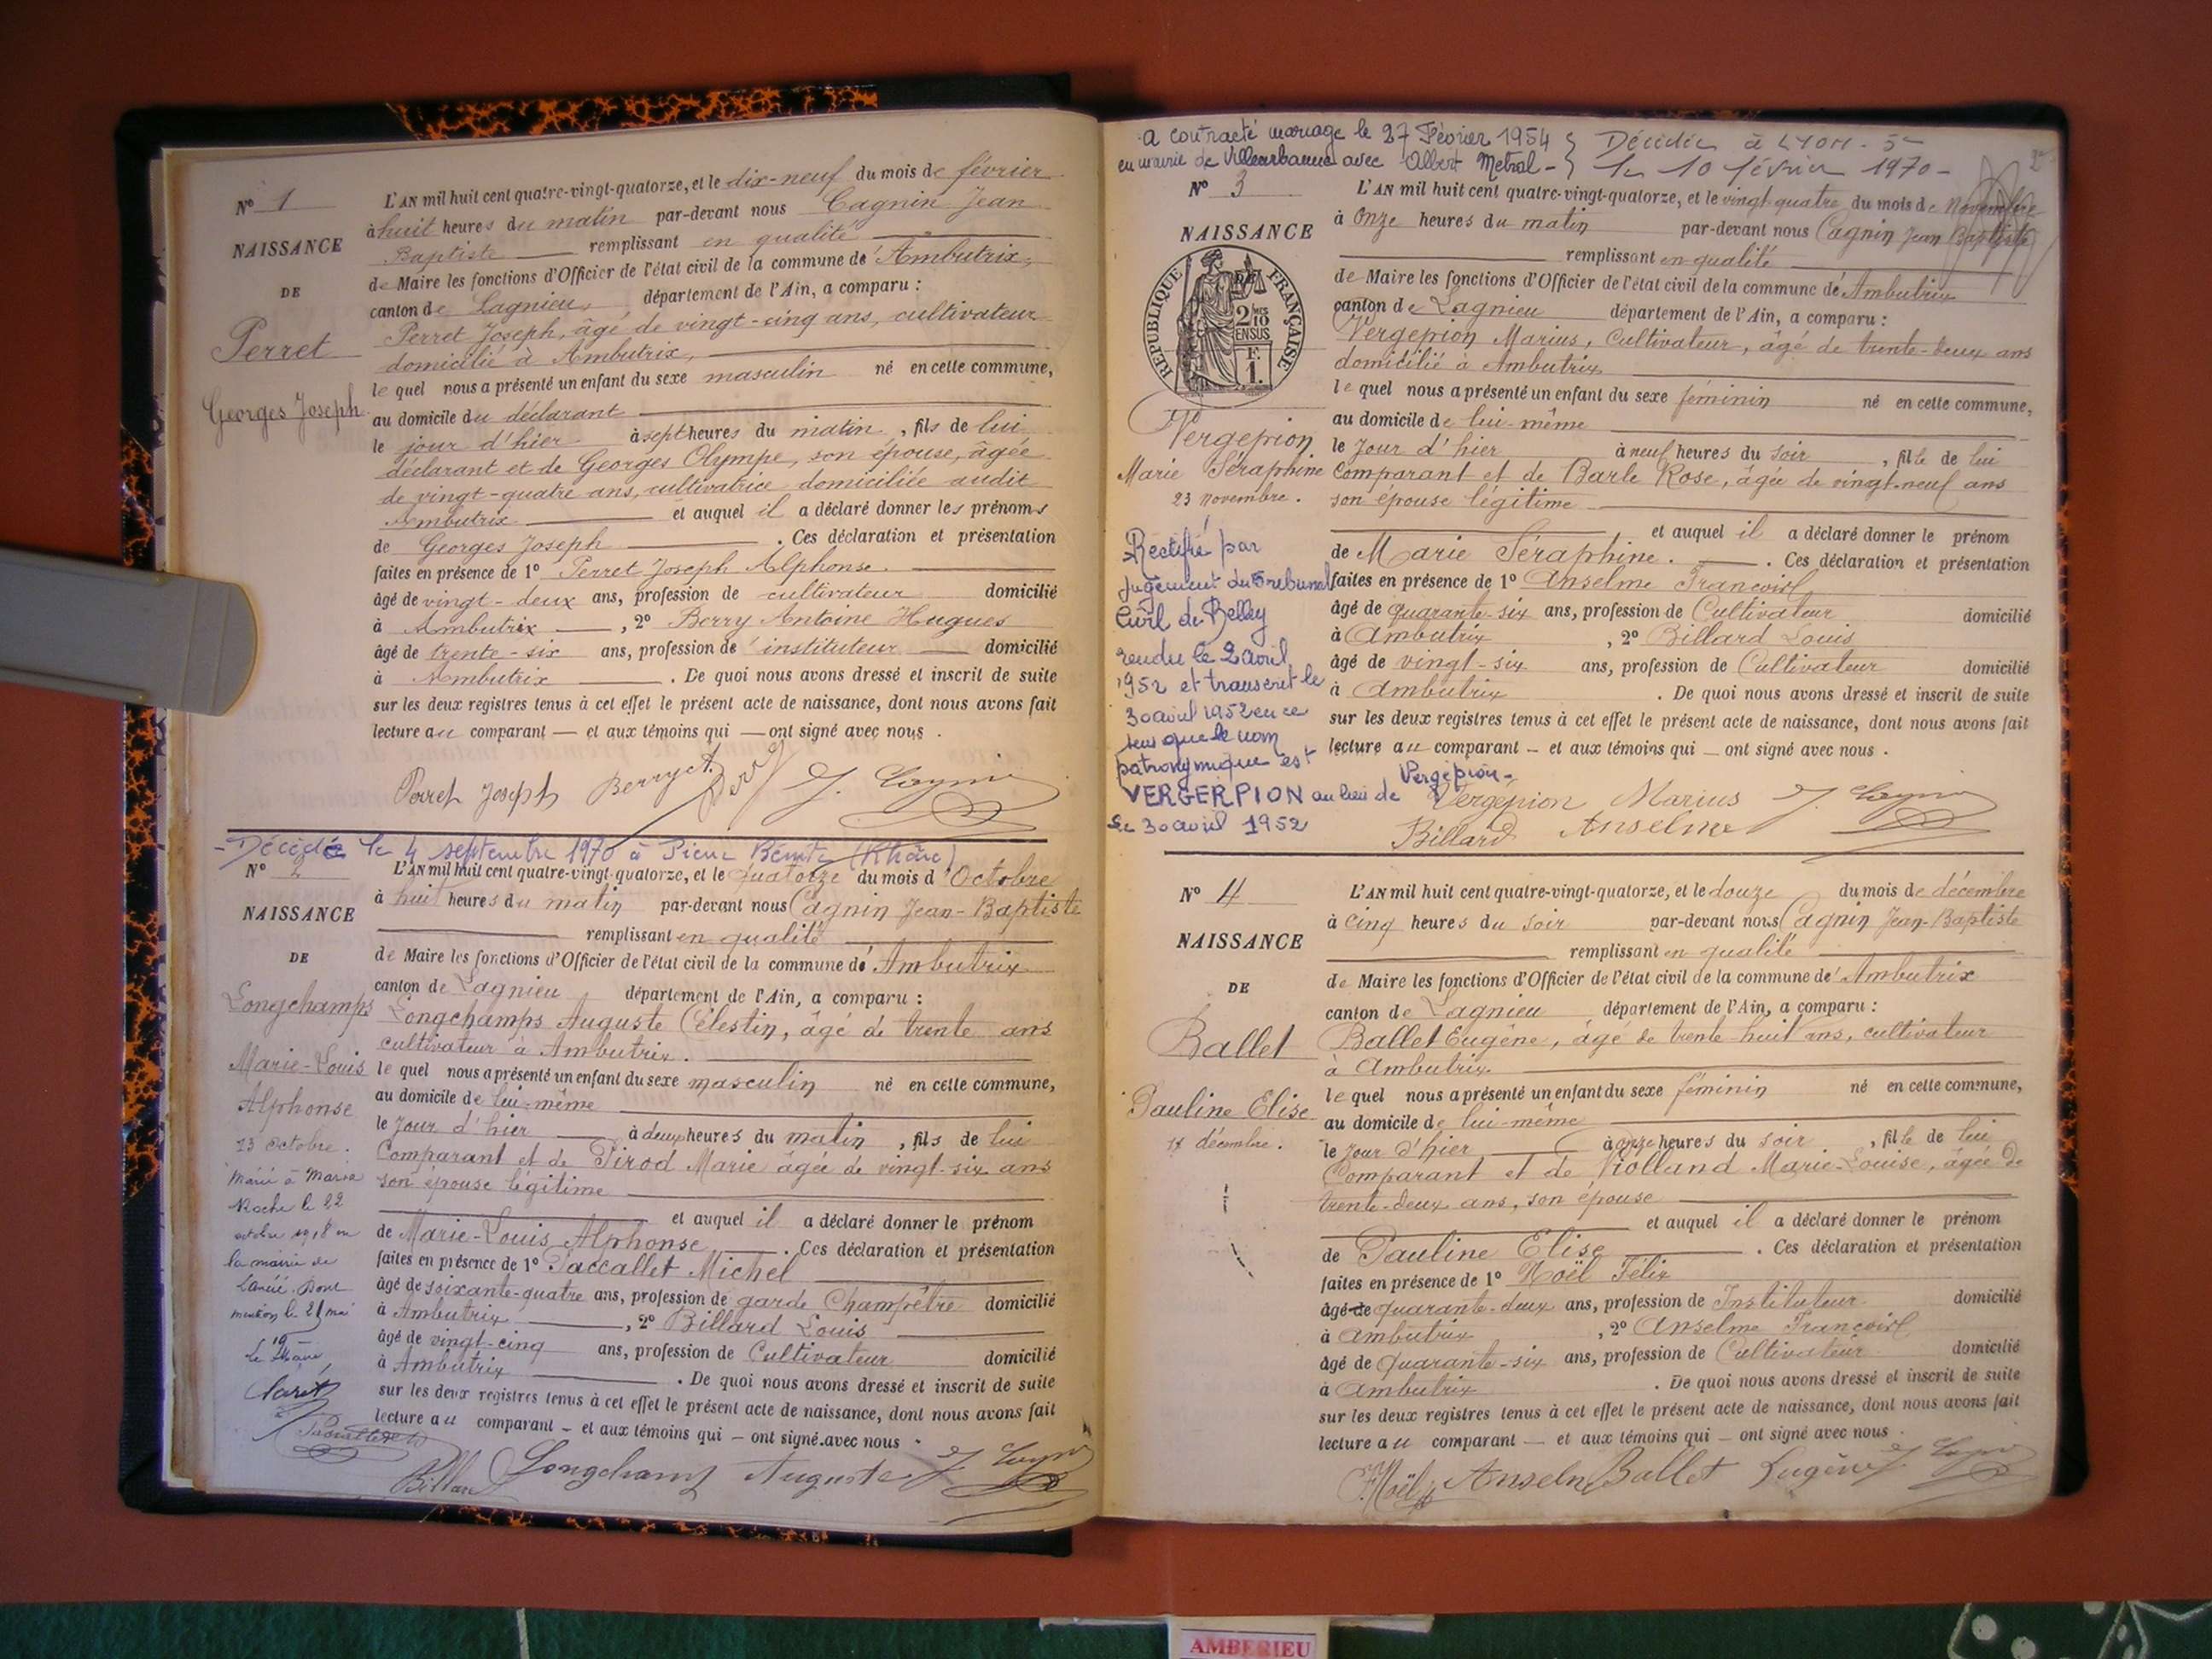 N° 1
NAISSANCE
DE
Perret
Georges Joseph
L'AN mil huit cent quatre-vingt-quatorze, et le dix-neuf du mois de février
à huit heures du matin par-devant nous Cagnin Jean
Baptiste remplissant en qualité
de Maire les fonctions d'Officier de l'état civil de la commune de Ambutrix,
canton de Lagnieu, département de l'Ain, a comparu :
Perret Joseph, âgé de vingt-cinq ans, cultivateur
domicilié à Ambutrix,
lequel nous a présenté un enfant du sexe masculin né en cette commune,
au domicile du déclarant
le jour d'hier à sept heures du matin, fils de lui
déclarant et de Georges Olympe, son épouse, âgée
de vingt-quatre ans, cultivatrice domiciliée audit
Ambutrix et auquel il a déclaré donner les prénoms
de Georges Joseph . Ces déclaration et présentation
faites en présence de 1° Perret Joseph Alphonse.
âgé de vingt-deux ans, profession de cultivateur domicilié
à Ambutrix , 2° Berry Antoine Hugues
âgé de trente-six ans, profession de instituteur domicilié
à Ambutrix . De quoi nous avons dressé et inscrit de suite
sur les deux registres tenus à cet effet le présent acte de naissance, dont nous avons fait
lecture au comparant — et aux témoins qui — ont signé avec nous .
Perret Joseph Berry A. J. Cagnin
Décédé le 4 septembre 1970 à Pierre Bénite (Rhône)
N° 2
NAISSANCE
DE
Longchamps
Marie-Louis
Alphonse
13 octobre.
Marié à Maria
Roche le 22
octobre 1918 en
la mairie de
mention le 21 mai
19
Le Maire
L'AN mil huit cent quatre-vingt-quatorze, et le quatorze du mois d'Octobre
à huit heures du matin par-devant nous Cagnin Jean-Baptiste
remplissant en qualité
de Maire les fonctions d'Officier de l'état civil de la commune de Ambutrix
canton de Lagnieu département de l'Ain, a comparu :
Longchamps Auguste Célestin, âgé de trente ans
cultivateur à Ambutrix.
lequel nous a présenté un enfant du sexe masculin né en cette commune,
au domicile de lui-même
le jour d'hier à deux heures du matin, fils de lui
Comparant et de Pirod Marie âgée de vingt-six ans
son épouse légitime
et auquel il a déclaré donner le prénom
de Marie-Louis Alphonse . Ces déclaration et présentation
faites en présence de 1° Paccallet Michel
âgé de soixante-quatre ans, profession de garde Champêtre domicilié
à Ambutrix , 2° Billard Louis
âgé de vingt-cinq ans, profession de Cultivateur domicilié
à Ambutrix . De quoi nous avons dressé et inscrit de suite
sur les deux registres tenus à cet effet le présent acte de naissance, dont nous avons fait
lecture au comparant – et aux témoins qui – ont signé avec nous .
Billard Longchamp Auguste J. Cagnin
a contracté mariage le 27 Février 1954
en mairie de Villeurbanne avec Albert Metral -
Décédée à LYON. 5e
le 10 février 1970 -
2
N° 3
NAISSANCE
RÉPUBLIQUE FRANÇAISE
2 MES
10
EN SUS
F.
1.
Vergepion
Marie Séraphine
23 novembre.
Rectifié par
jugement du Tribunal
Civil de Belley
rendu le 2 avril
1952 et transcrit le
30 avril 1952 en ce
sens que le nom
patronymique est
VERGERPION au lieu de Vergépion -
Le 30 avril 1952
L'AN mil huit cent quatre-vingt-quatorze, et le vingt quatre du mois de Novembre
à Onze heures du matin par-devant nous Cagnin Jean Baptiste
remplissant en qualité
de Maire les fonctions d'Officier de l'état civil de la commune de Ambutrix
canton de Lagnieu département de l'Ain, a comparu :
Vergepion Marius, Cultivateur, âgé de trente-deux ans
domicilié à Ambutrix
lequel nous a présenté un enfant du sexe féminin né en cette commune,
au domicile de lui-même
le jour d'hier à neuf heures du soir , fille de lui
Comparant et de Barle Rose, âgée de vingt-neuf ans
son épouse légitime
et auquel il a déclaré donner le prénom
de Marie Séraphine. . Ces déclaration et présentation
faites en présence de 1° Anselme François
âgé de quarante-six ans, profession de Cultivateur domicilié
à Ambutrix , 2° Billard Louis
âgé de vingt-six ans, profession de Cultivateur domicilié
à Ambutrix . De quoi nous avons dressé et inscrit de suite
sur les deux registres tenus à cet effet le présent acte de naissance, dont nous avons fait
lecture au comparant – et aux témoins qui – ont signé avec nous .
Vergepion Marius J. Cagnin
Billard Anselme
N° 4
NAISSANCE
DE
Ballet
Pauline Elise
11 décembre.
L'AN mil huit cent quatre-vingt-quatorze, et le douze du mois de décembre
à cinq heures du soir par-devant nous Cagnin Jean-Baptiste
remplissant en qualité
de Maire les fonctions d'Officier de l'état civil de la commune de Ambutrix
canton de Lagnieu département de l'Ain, a comparu :
Ballet Eugène, âgé de trente-huit ans, cultivateur
à Ambutrix
lequel nous a présenté un enfant du sexe féminin né en cette commune,
au domicile de lui-même
le jour d'hier à onze heures du soir , fille de lui
Comparant et de Violland Marie-Louise, âgée de
trente-deux ans, son épouse
et auquel il a déclaré donner le prénom
de Pauline Elise . Ces déclaration et présentation
faites en présence de 1° Noël Félix
âgé de quarante-deux ans, profession de Instituteur domicilié
à Ambutrix , 2° Anselme François
âgé de Quarante-six ans, profession de Cultivateur domicilié
à Ambutrix . De quoi nous avons dressé et inscrit de suite
sur les deux registres tenus à cet effet le présent acte de naissance, dont nous avons fait
lecture au comparant — et aux témoins qui – ont signé avec nous .
F. Noël Anselme Ballet Eugène J. Cagnin
AMBERIEU